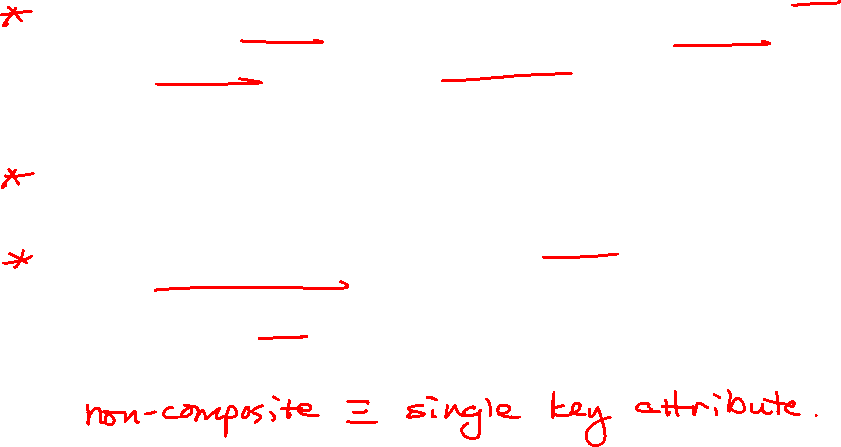 *
*
*
non-composite ≡ single key attribute.